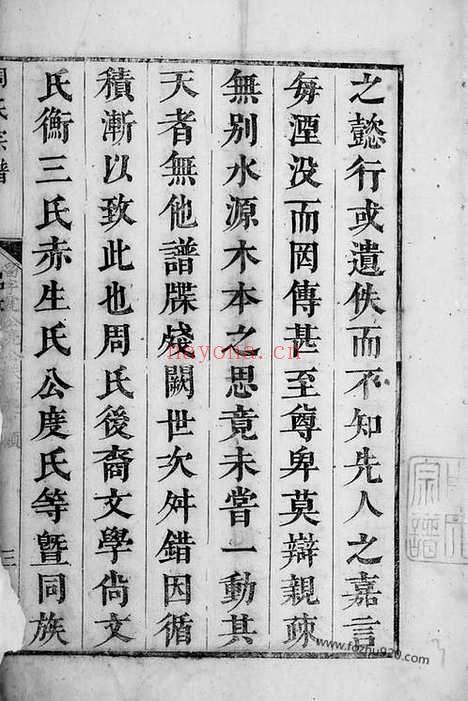 之懿行或遺佚而不知先人之嘉言
每湮没而罔傳甚至尊卑莫辯親疎
無别水源木本之思竟未嘗一動其
天者無他譜牒殘闕世次舛錯因循
積漸以致此也周氏後裔文學尙文
氏衡三氏赤生氏公度氏等曁同族
周氏宗譜
三
宗譜
nayona.cn
www.fozhu920.com